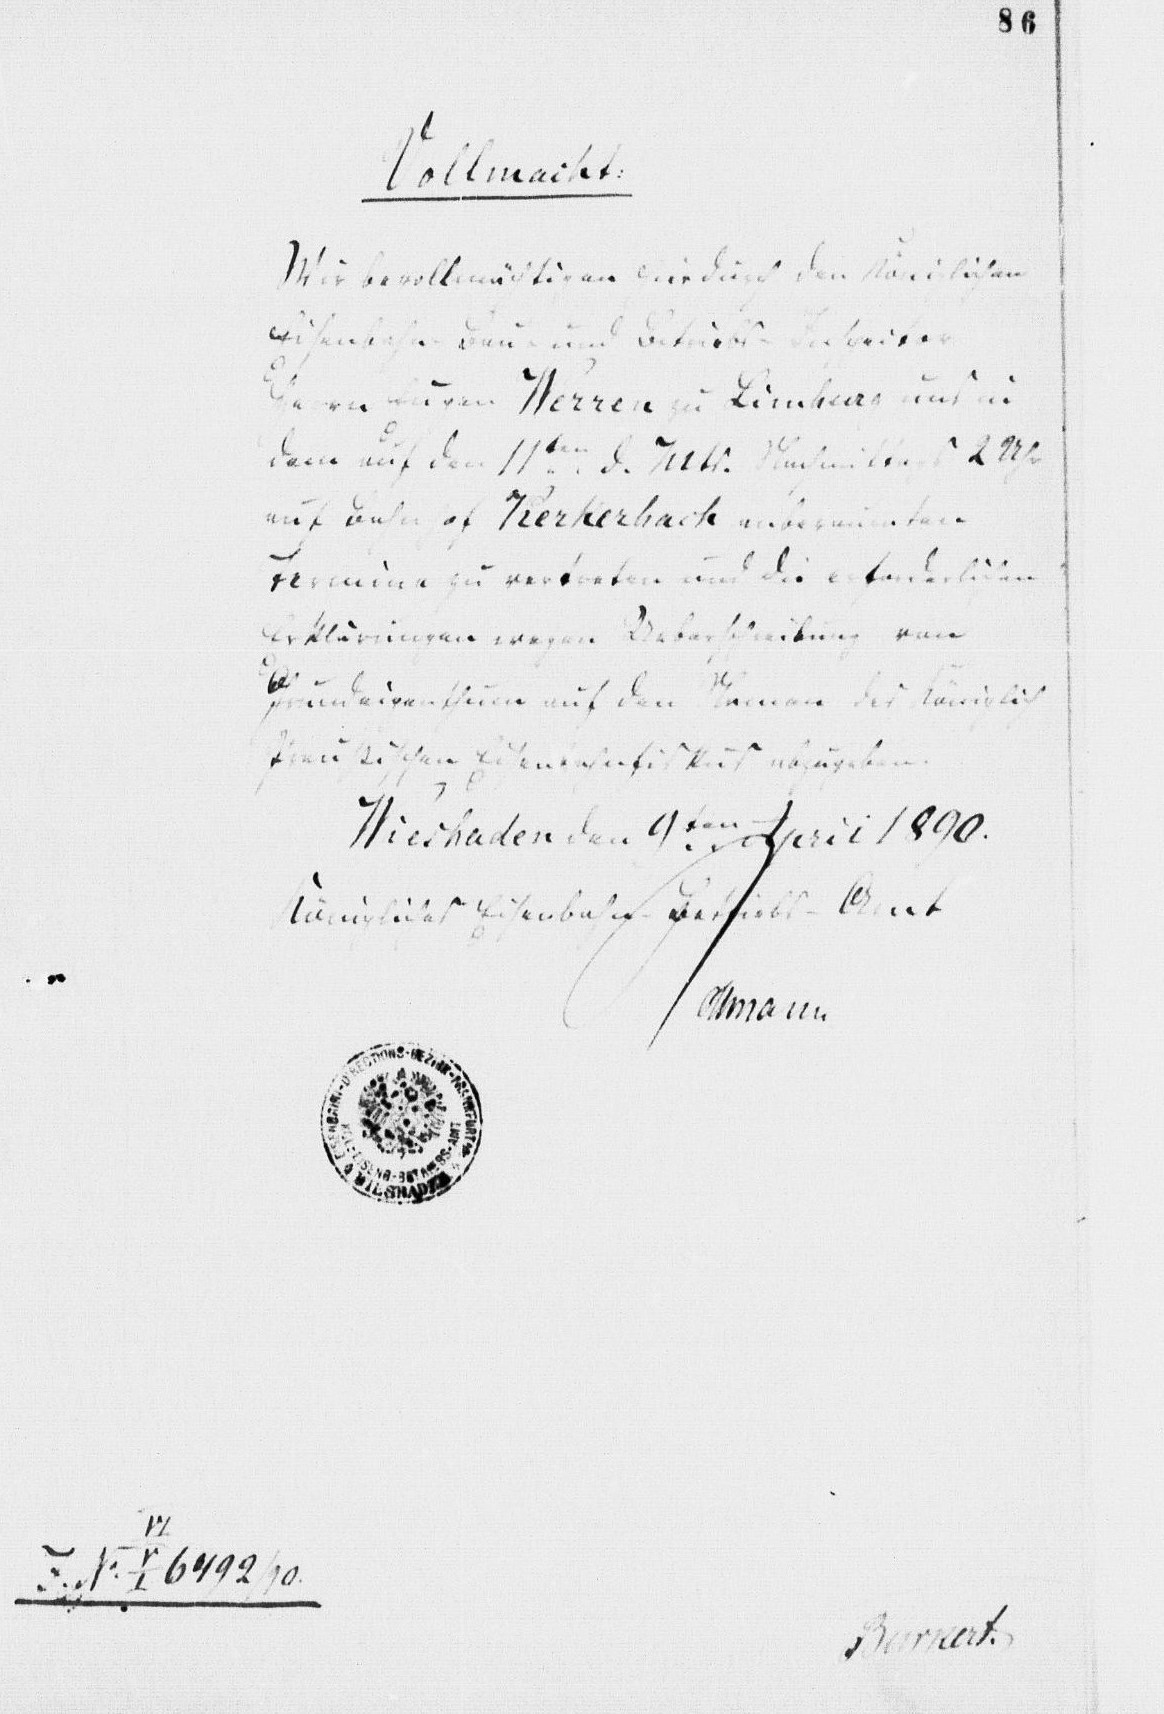 86
Vollmacht:
Wir bevollmächtigen hierdurch den Königlichen
Eisenbahn-Bau- und Betriebs-Inspector
Herrn Werren zu Limburg uns in
dem auf den 11ten d. Mts. Nachmittags 2 Uhr
auf Bahnhof Kerkerbach anberaumten
Termine zu vertreten und die erforderlichen
Erklärungen wegen Ueberschreibung von
Grundeigenthum auf den Namen des Königlich
Preußischen Eisenbahnfiskus abzugeben.
Wiesbaden den 9ten April 1890.
Königliches Eisenbahn-Betriebs-Amt
EISENBAHN-DIRECTIONS-BEZIRK-FRANKFURT
KGL. EISENB-BETRIEBS-AMT
WIESBADEN
VI
V
I
J. N. 6492/90.